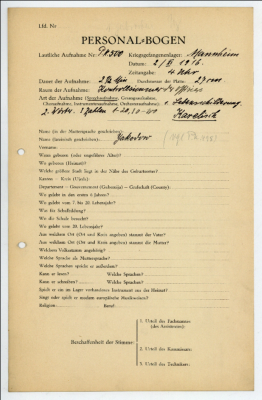 Lfd. Nr.
PERSONAL-BOGEN
Lautliche Aufnahme Nr. Kriegsgefangenenlager: Mannheim
Datum: 2/II 1916.
Zeitangabe: 4 Uhr
Dauer der Aufnahme: 2 Min Durchmesser der Platte: 27 cm
Raum der Aufnahme:
Art der Aufnahme (Sprechaufnahme, Gesangsaufnahme,
Choraufnahme, Instrumentenaufnahme, Orchesteraufnahme):
Karelisch
Name (in der Muttersprache geschrieben):
Name (lateinisch geschrieben): Jakolow
Vorname:
Wann geboren (oder ungefähres Alter)?
Wo geboren (Heimat)?
Welche größere Stadt liegt in der Nähe des Geburtsortes?
Kanton – Kreis (Ujezd):
Departement – Gouvernement (Gubernija) – Grafschaft (County):
Wo gelebt in den ersten 6 Jahren?
Wo gelebt vom 7. bis 20. Lebensjahr?
Was für Schulbildung?
Wo die Schule besucht?
Wo gelebt vom 20. Lebensjahr?
Aus welchem Ort (Ort und Kreis angeben) stammt der Vater?
Aus welchem Ort (Ort und Kreis angeben) stammt die Mutter?
Welchem Volksstamm angehörig?
Welche Sprache als Muttersprache?
Welche Sprachen spricht er außerdem?
Kann er lesen? Welche Sprachen?
Kann er schreiben? Welche Sprachen?
Spielt er ein im Lager vorhandenes Instrument aus der Heimat?
Singt oder spielt er modern europäische Musikweisen?
Religion: Beruf:
Beschaffenheit der Stimme:
1. Urteil des Fachmannes
(des Assistenten):
2. Urteil des Kommissars:
3. Urteil des Technikers: